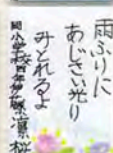 雨ふりに
あじさい光り
みとれるよ